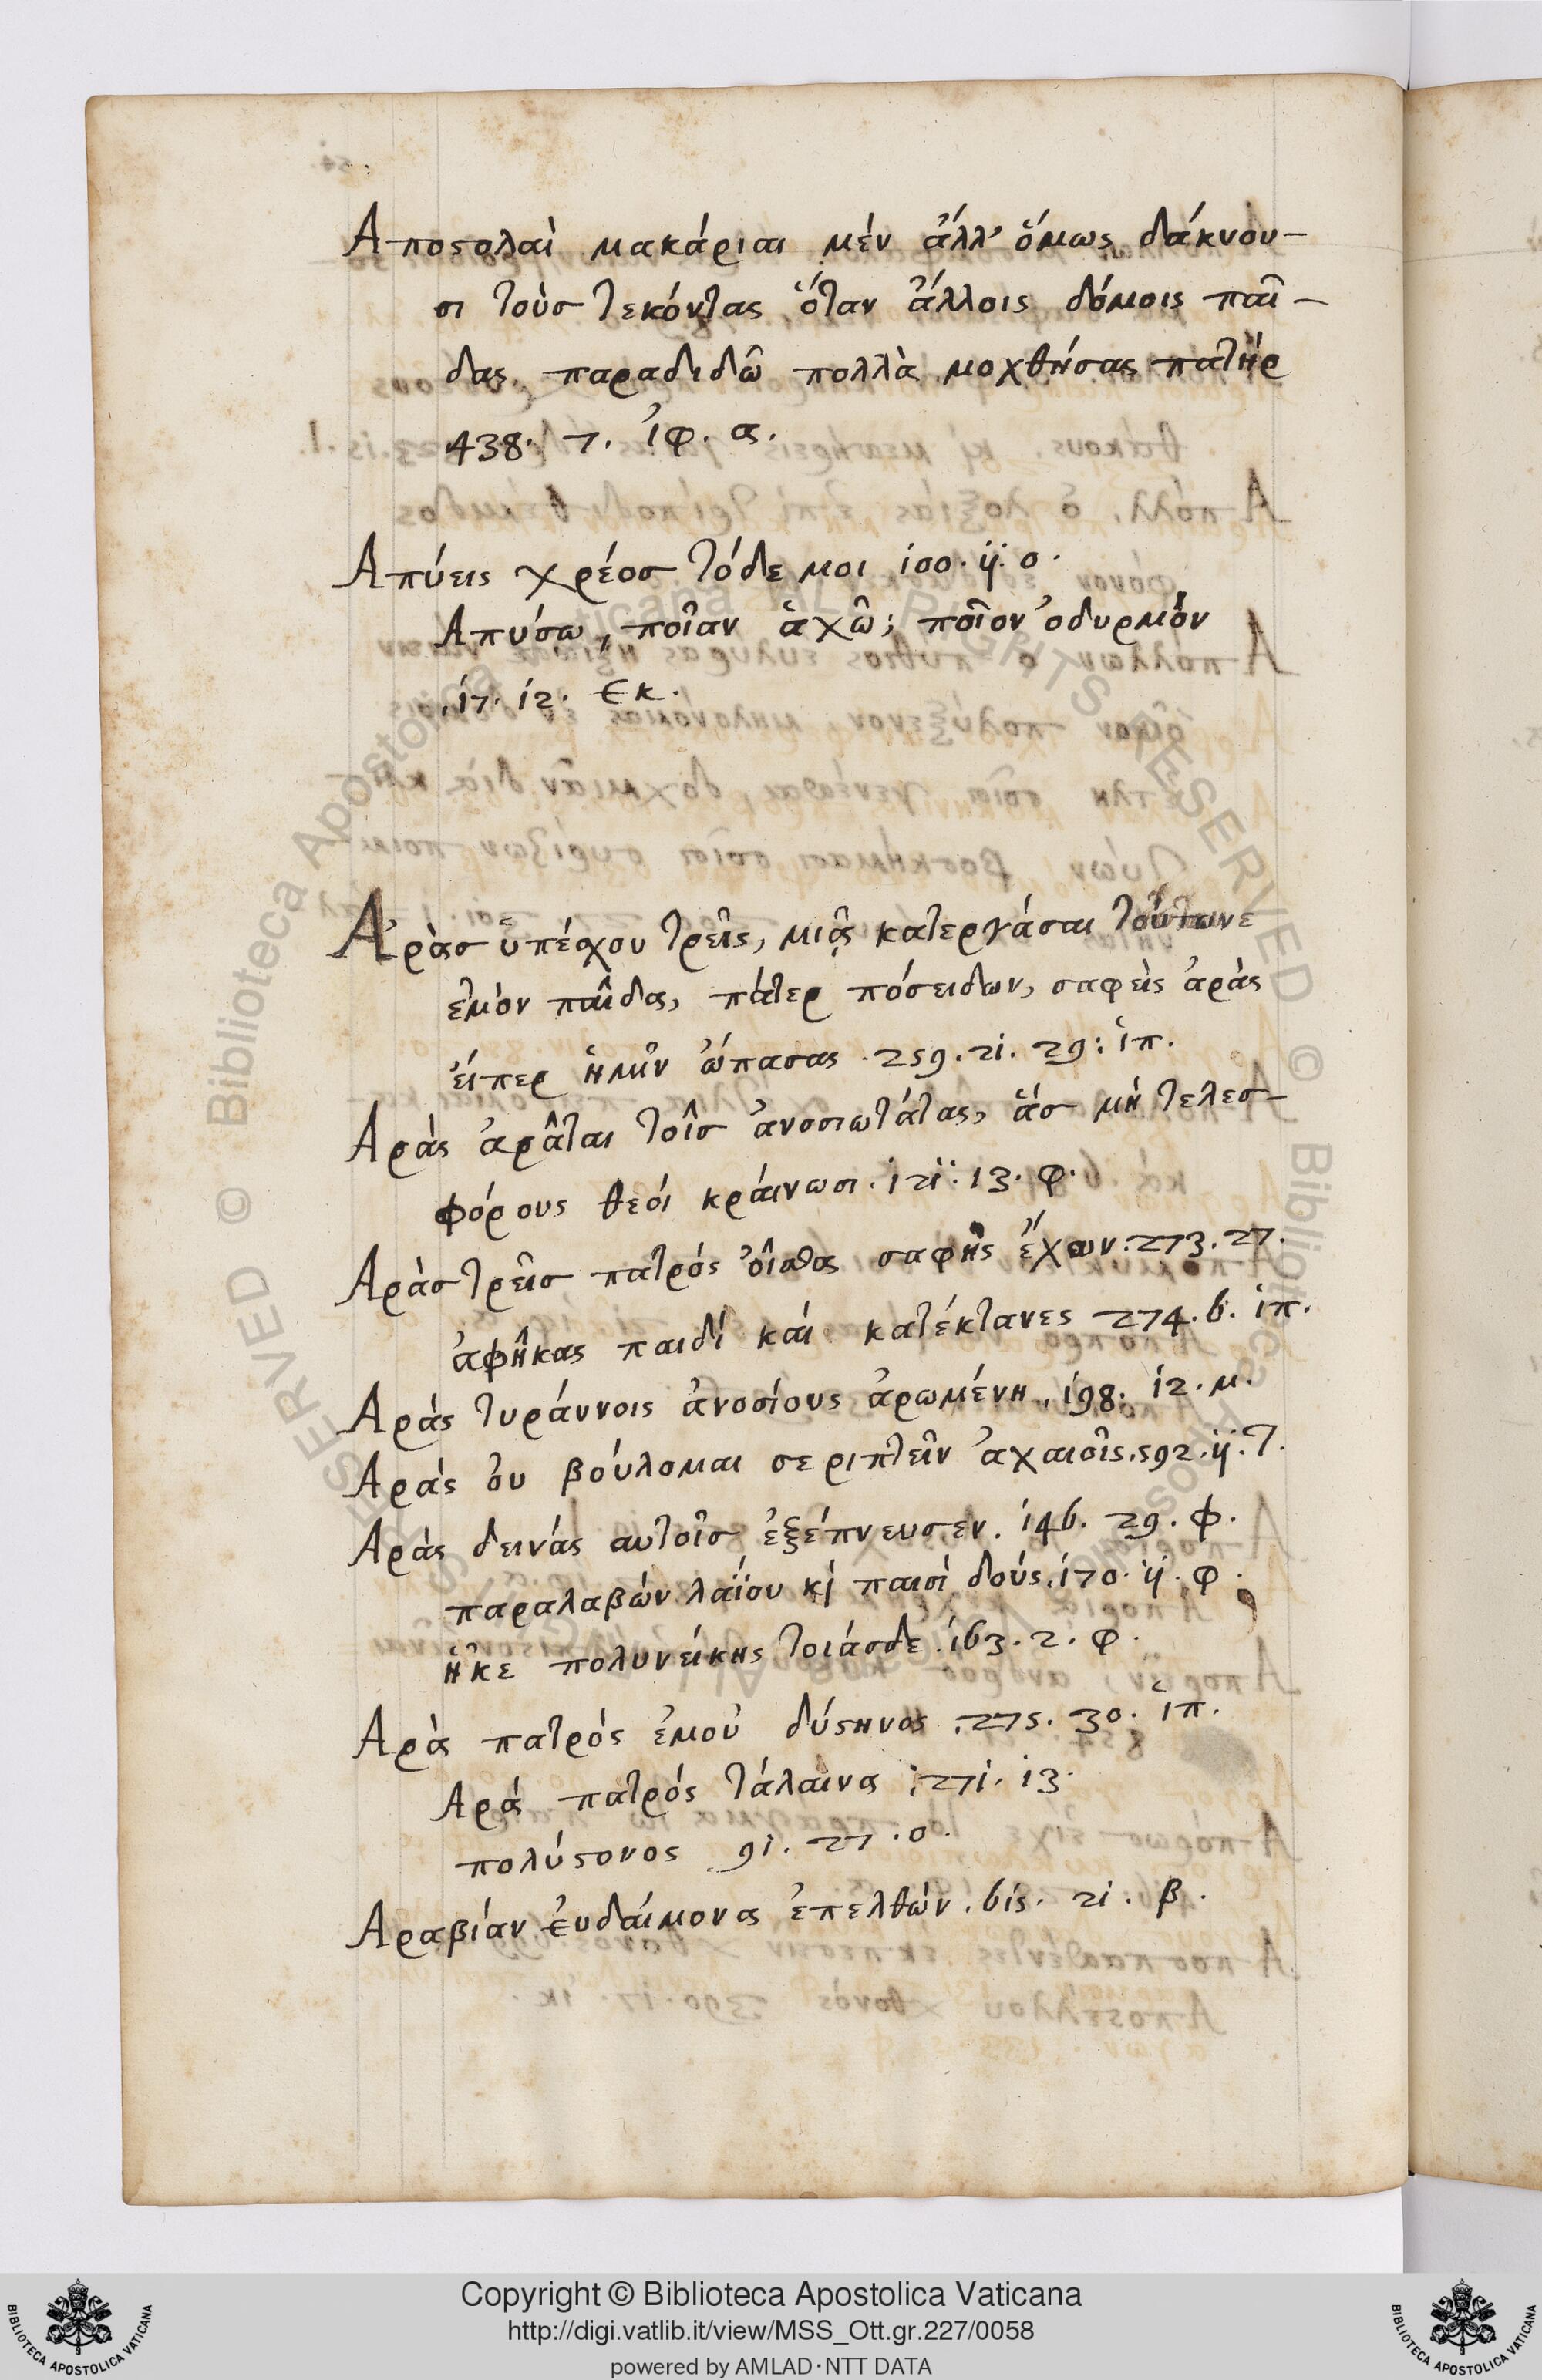 Αποϛολαὶ μακάριαι μέν ἀλλ' ὅμως δάκνου-
σι τοὺσ τεκόντας ὅταν ἄλλοις δόμοις παῖ-
δας παραδιδῶ πολλὰ μοχθήσας πατὴρ
438. 7. ἰφ. α.
Απύεις χρέοσ τόδε μοι ἰοο. ÿ. ο.
Απύσω, ποῖαν ἀχῶ; ποῖον ὀδυρμὸν
17. 12. Εκ.
Αʼρὰσ ὑπέσχου τρεῖς, μιᾷ κατεργάσαι
ἐμὸν παῖδα, πάτερ πόσειδων, σαφεὶς ἀρὰς
εἴπερ ἡμῖν ὤπασας . 259. 21. 29: ἱπ.
Αρὰς ἀρᾶται τοῖσ ἀνοσιωτάτας, ἅσ μὴ τελεσ-
φόρους θεόι κράινωσι. 121. 13. φ.
Αρὰσ τρεῖσ πατρός ὄισθα σαφὴς ἔχων. 273. 27.
ἀφῆκας παιδί καί κατέκτανες 274. 6. ἱπ.
Αρὰς τυράννοις ἀνοσίους ἀρωμένη. 198. 12. μ.
Αρὰς ὀυ βούλομαι σε ριπτεῖν ἀχαιοῖς. 592. ÿ. Τ.
Αρὰς δεινάς αυτοῖσ ἐξέπνευσεν. 146. 29. φ.
παραλαβών λαΐου κὶ παισὶ δούς. 170. ÿ. φ.
ἧκε πολυνείκης τοιάσδε. 163. 2. φ.
Αρὰ πατρὸς ἐμοῦ δύϛηνος . 275. 30. ἱπ.
Αρά πατρός τάλαινα : 271. 13.
πολύϛονος 91. 27. ο.
Αραβίαν ἐυδαίμονα ἐπελθών. 615. 21. β.
Copyright © Biblioteca Apostolica Vaticana
http://digi.vatlib.it/view/MSS_Ott.gr.227/0058
powered by AMLAD·NTT DATA